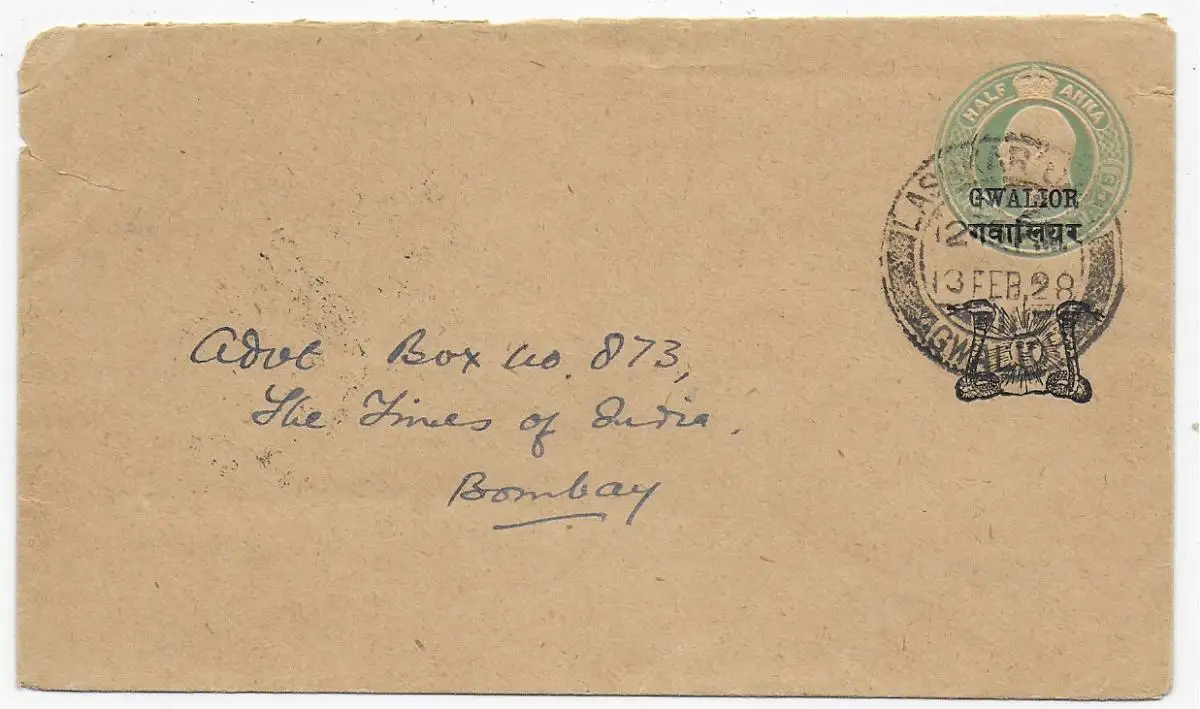 HALF ANNA
GWALIOR
गवालियर
LASHKAR
13 FEB. 28
GWALIOR
Advt Box no. 873,
The Times of India.
Bombay